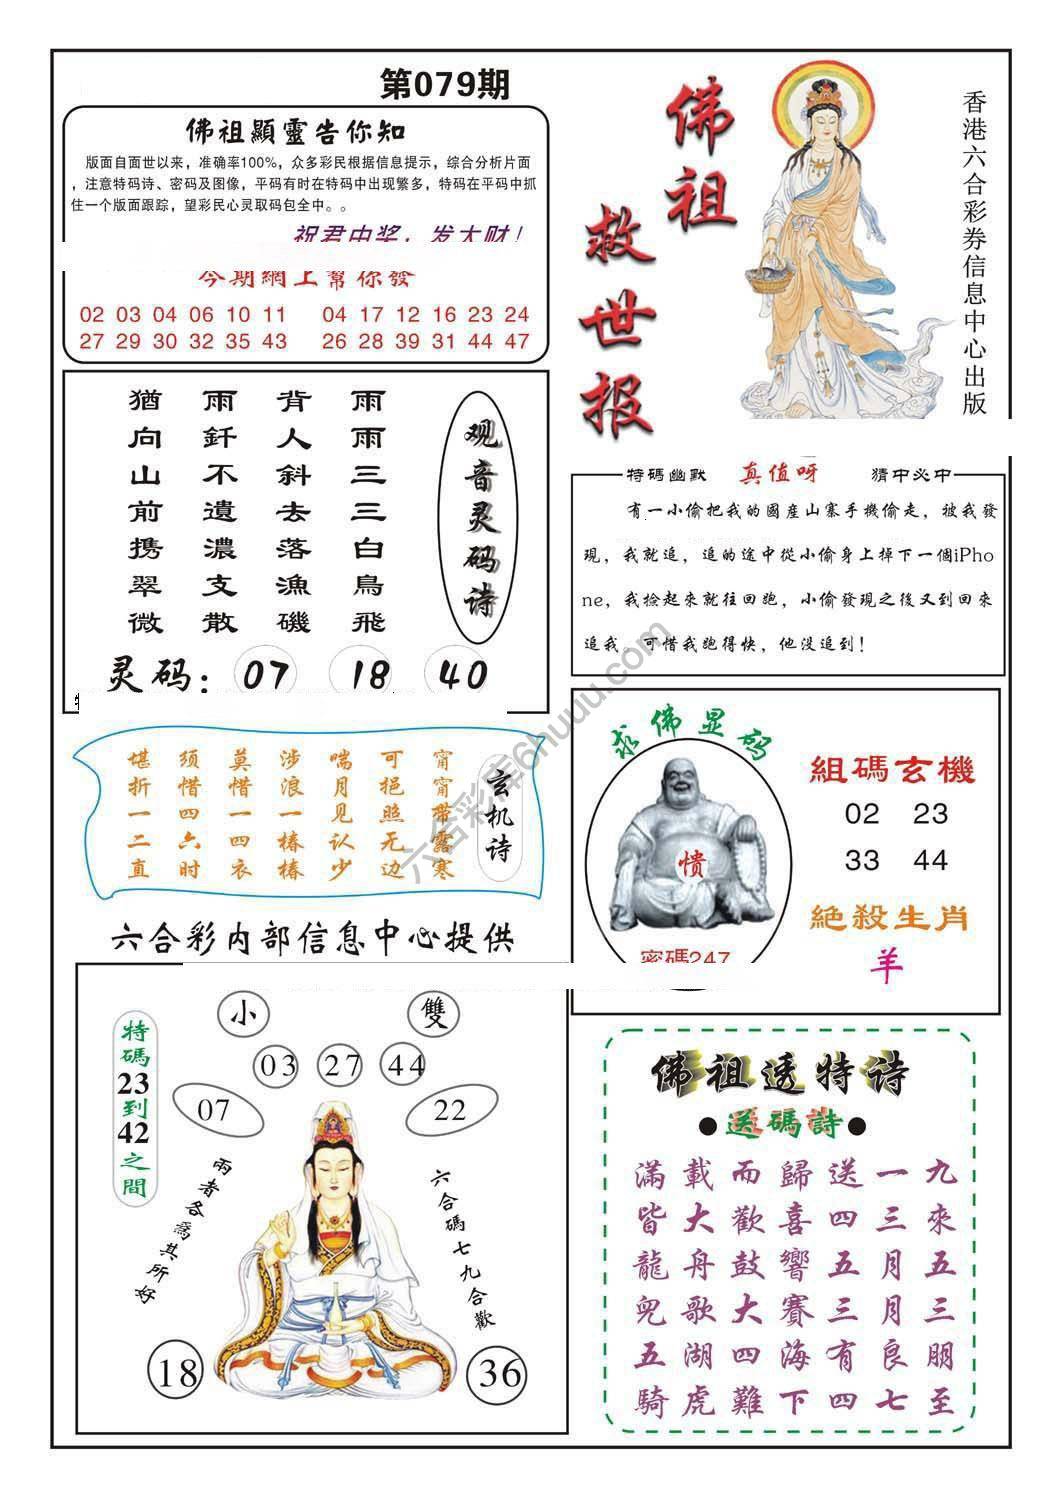 第079期
佛祖顯靈告你知
版面自面世以来，准确率100%，众多彩民根据信息提示，综合分析片面
，注意特码诗、密码及图像，平码有时在特码中出现繁多，特码在平码中抓
住一个版面跟踪，望彩民心灵取码包全中。。
祝君中奖，发大财！
今期網上幫你發
02 03 04 06 10 11 04 17 12 16 23 24
27 29 30 32 35 43 26 28 39 31 44 47
佛祖
救世报
香港六合彩券信息中心出版
观音灵码诗
雨雨三三白鳥飛
背人斜去落漁磯
雨釺不遺濃支散
猶向山前携翠微
灵码：07 18 40
特碼幽默 真值呀 猜中必中
有一小偷把我的國産山寨手機偷走，被我發
現，我就追，追的途中從小偷身上掉下一個iPho
ne，我捡起來就往回跑，小偷發現之後又到回來
追我。可惜我跑得快，他没追到！
玄机诗
甯甯带露寒
可挹照无边
喘月见认少
涉浪一椿椿
莫惜一四衣
须惜四六时
堪折一二直
求佛显码
愦
密碼247
組碼玄機
02 23
33 44
絶殺生肖
羊
六合彩内部信息中心提供
小 雙
03 27 44
07 22
特碼23到42之間
兩者各爲其所好
六合碼七九合歡
18 36
佛祖透特诗
●送碼詩●
滿載而歸送一九
皆大歡喜四三來
龍舟鼓響五月五
兇歌大賽三月三
五湖四海有良朋
騎虎難下四七至
六合彩库6huuu.com